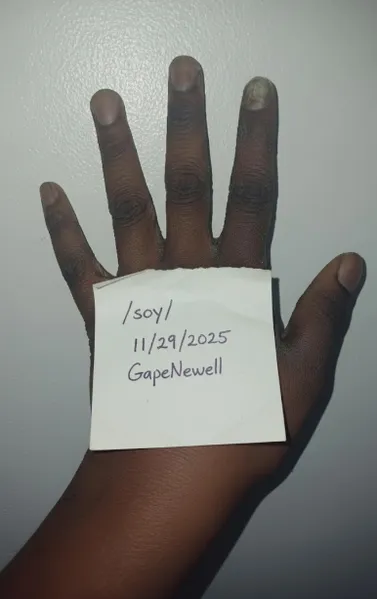 /soy/
11/29/2025
GapeNewell